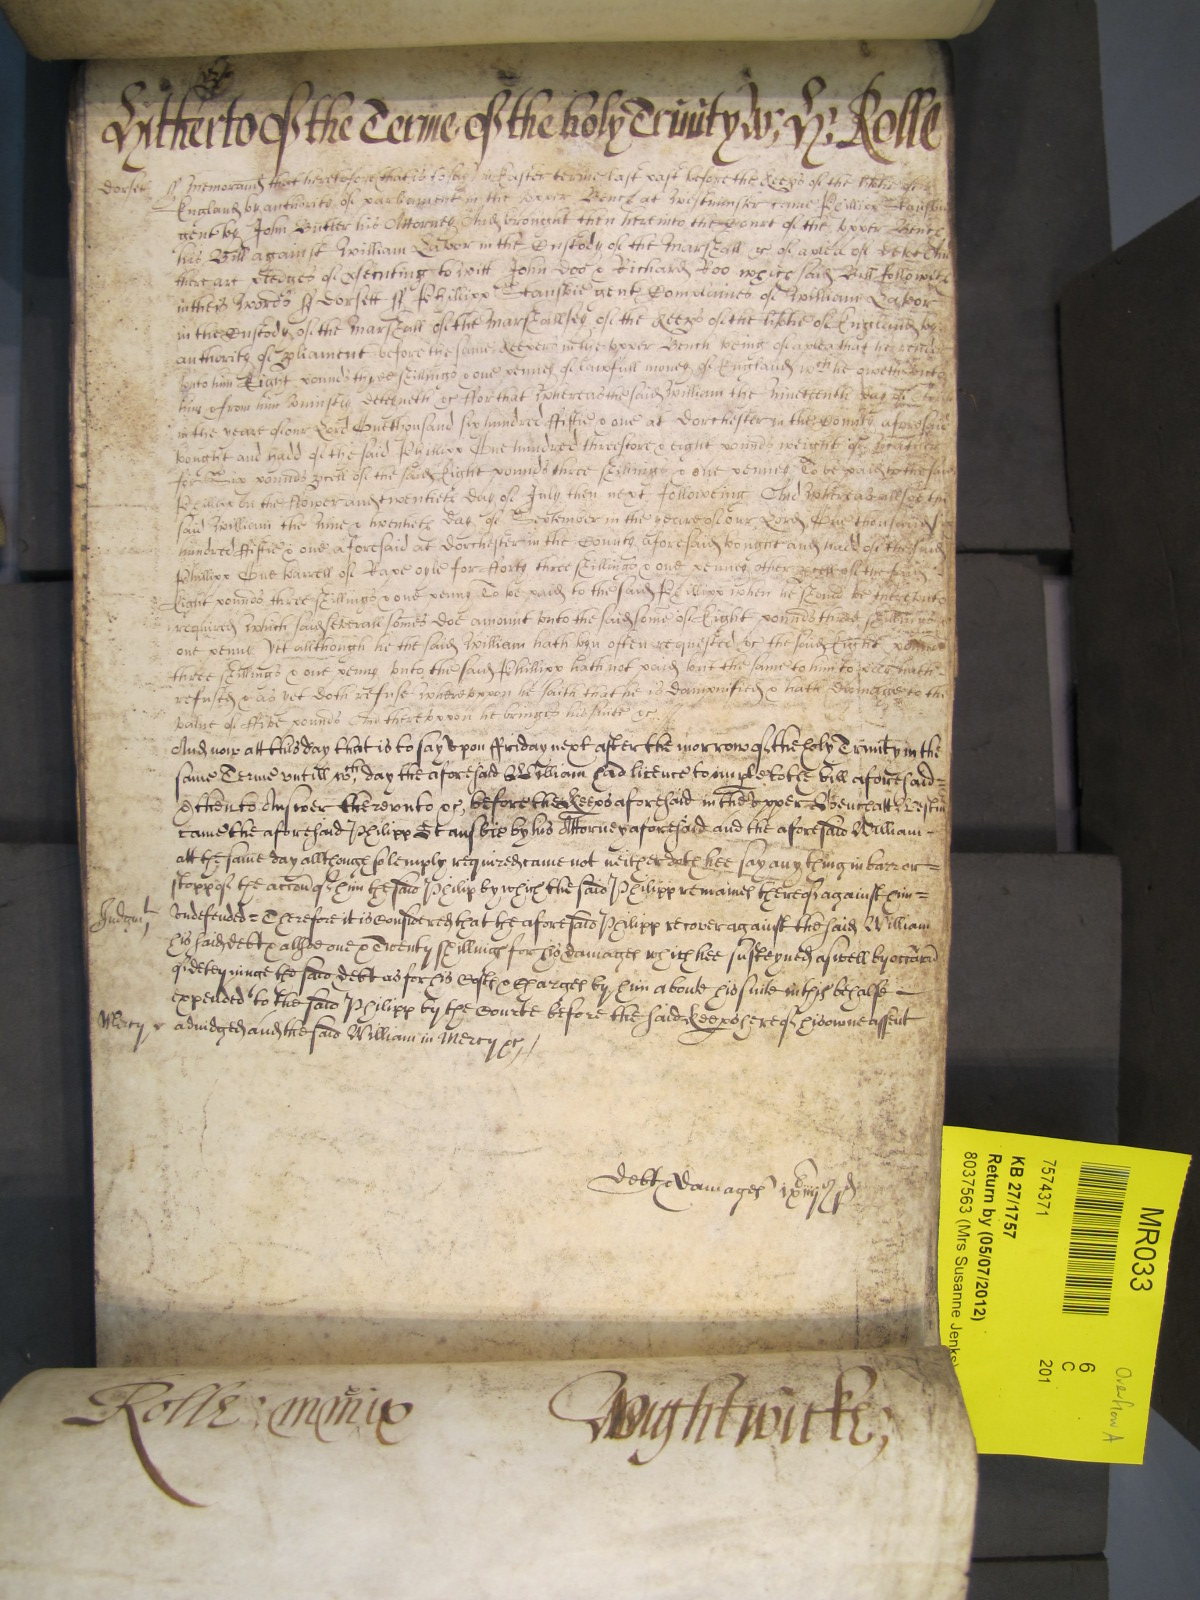 Hitherto Of the Terme Of the holy Trinity Rolle
Dorset ss Memorand that heretofore that is to say in Easter terme last past before the Keeps of the libtie of
England by authority of parliament in the Upper Bench at Westminster came Phillipp Stansbie
gent by John Butler his Attorney And brought then here into the Court of the Upper Bench
his Bill against William Labor in the Custody of the Marshall &c of a plea of debt And
there are pledges of psecuting to witt John Doo & Richard Roo which said Bill followeth
in theis words ss Dorsett ss Phillipp Stansbie gent Complaines of William Labor
in the Custody of the Marshall of the Marshallsey of the Keeps of the libtie of England by
authority of pliament before the same Keepers in the Upper Bench being of a plea that he render
unto him Eight pounds three shillings & one penney of lawfull money of England wch he oweth unto
him & from him uniustly deteyneth &c For that Whereas the said William the Nineteenth day of
in the yeare of our Lord One thousand six hundred fiftie & one at Dorchester in the County aforesaid
bought and hadd of the said Phillipp One hundred threescore & eight pounds weight of
for Six pounds pcell of the said Eight pounds three shillings & one penney To be paid to the said
Phillipp on the fower and twentieth day of July then next followeing And Whereas allsoe the
said William the Nine & twentieth day of September in the yeare of our Lord One thousand six
hundred fiftie & one aforesaid at Dorchester in the County aforesaid bought and hadd of the said
Phillipp One barrell of Rape oyle for forty three shillings & one penney other pcell of the said
Eight pounds three shillings & one penny To be paid to the said Phillipp when he should be thereunto
required which said severall somes doe amount unto the said some of Eight pounds three shillings &
one penny Yet allthough he the said William hath byn often requested &c the said Eight pounds
three shillings & one penny unto the said Phillipp hath not paid but the same to him to pay hath
refused & as yet doth refuse whereuppon he saith that he is damnified & hath damage to the
value of five pounds And thereuppon he brings his suite &c
And now att this day that is to say upon ffriday next after the morrow of the holy Trinity in the
same Terme untill wch day the aforesaid William had licence to imple to the bill aforesaid =
& then to Answer thereunto &c, before the Keeps aforesaid in the upper Bench att Westm
came the aforesaid Philipp Stansbie by his Attorney aforesaid and the aforesaid William -
att the same day allthough solemply required came not neither doth hee say any thing in barr or =
stopp of the accon of him the said Philip by which the said Philipp remaines thereof against him =
Judgmt Undefended = Therefore it is Considered that the aforesaid Philipp recover against the said William
his said debt & allsoe one & Twenty shillings for his damages which hee susteyned aswell by occacon
of deteyninge the said debt as for his costs & charges by him aboute his suite in this behalfe -
expended to the said Philipp by the Courte before the said Keeps here of his owne assent
Mercy adiudged and the said William in Mercy &c
Debt & damages ixli iiijs jd
Rolle mmix Wightwicke;
MR033
7574371
KB 27/1757
Return by (05/07/2012)
8037563 (Mrs Susanne Jenks)
6
C
201
Overflow A